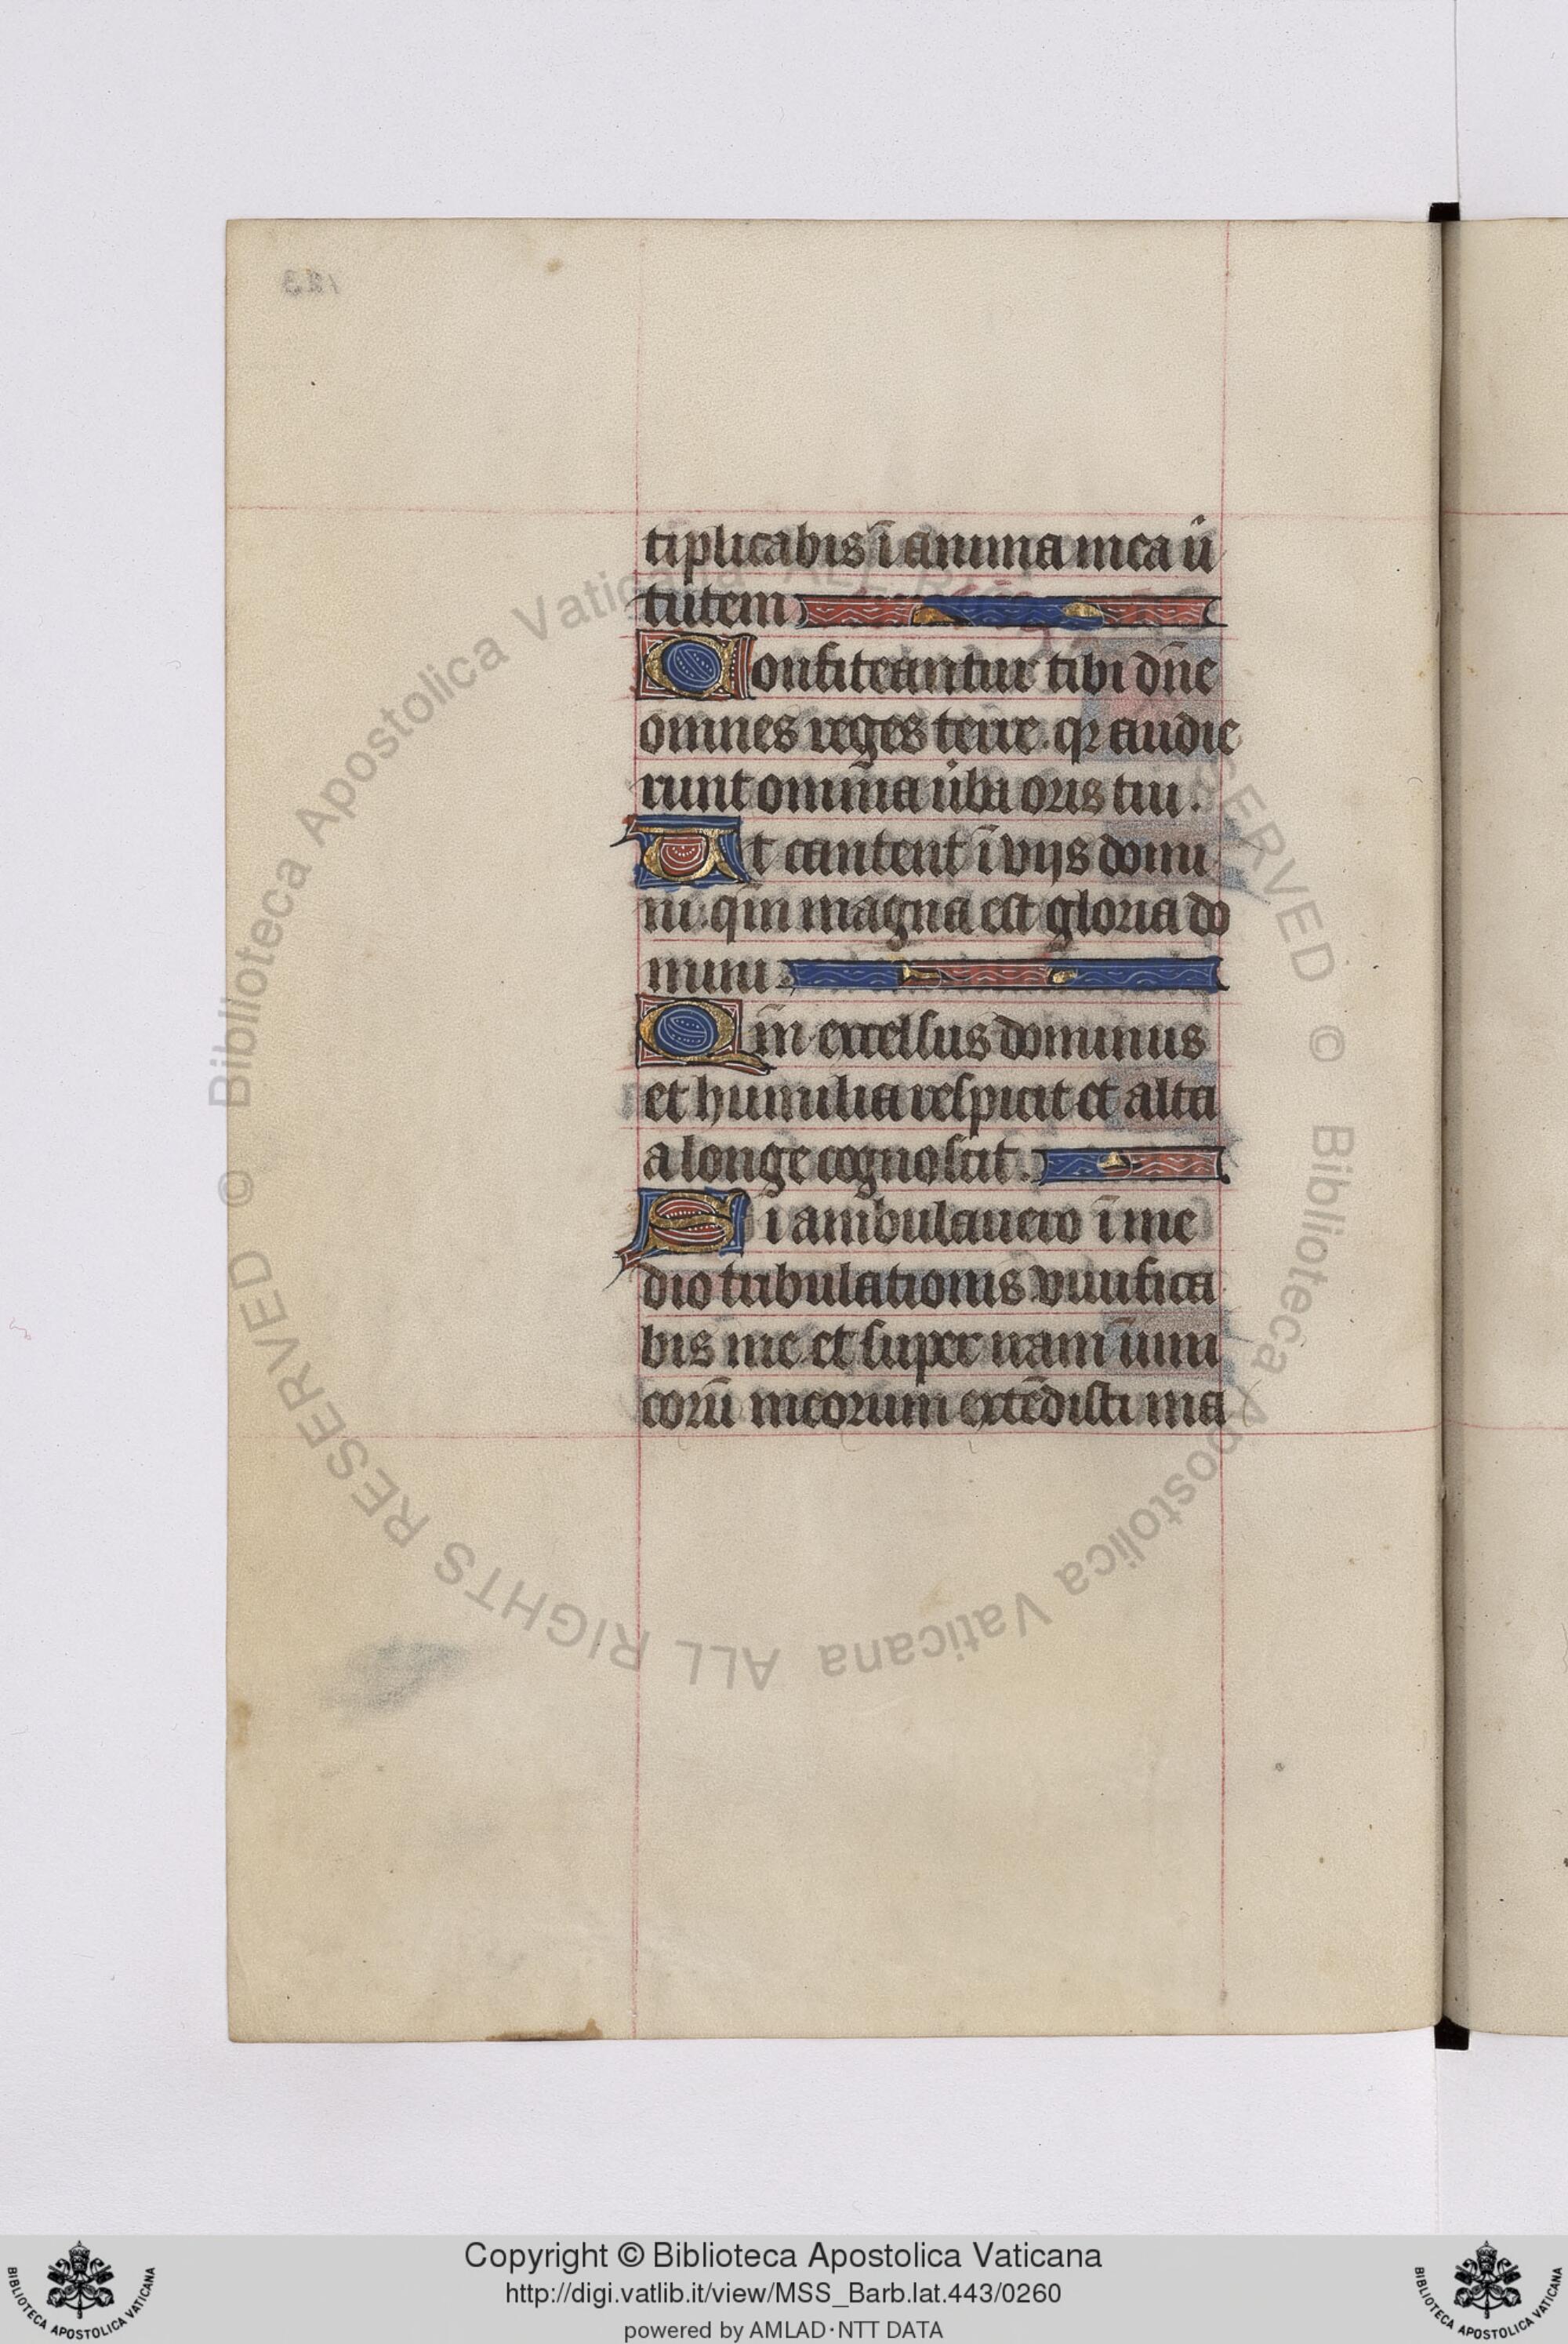 tiplicabis ī anima mea ū
tutem
Confiteantur tibi dn̄e
omnes reges terre. qꝛ audie
runt omnīa ūba oris tui.
Et cantent ī vijs domi
ni. qm̄ magna est gloria do
mini.
Qm̄ excelsus dominus
et humilia respicit et alta
a longe cognoscit.
Si ambulauero ī me
dio tribulationis viuifica
bis me. et super iram īimi
corū meorum extēdisti ma
Biblioteca Apostolica Vaticana ALL RIGHTS RESERVED ©
Copyright © Biblioteca Apostolica Vaticana
http://digi.vatlib.it/view/MSS_Barb.lat.443/0260
powered by AMLAD·NTT DATA
BIBLIOTECA APOSTOLICA VATICANA
BIBLIOTECA APOSTOLICA VATICANA